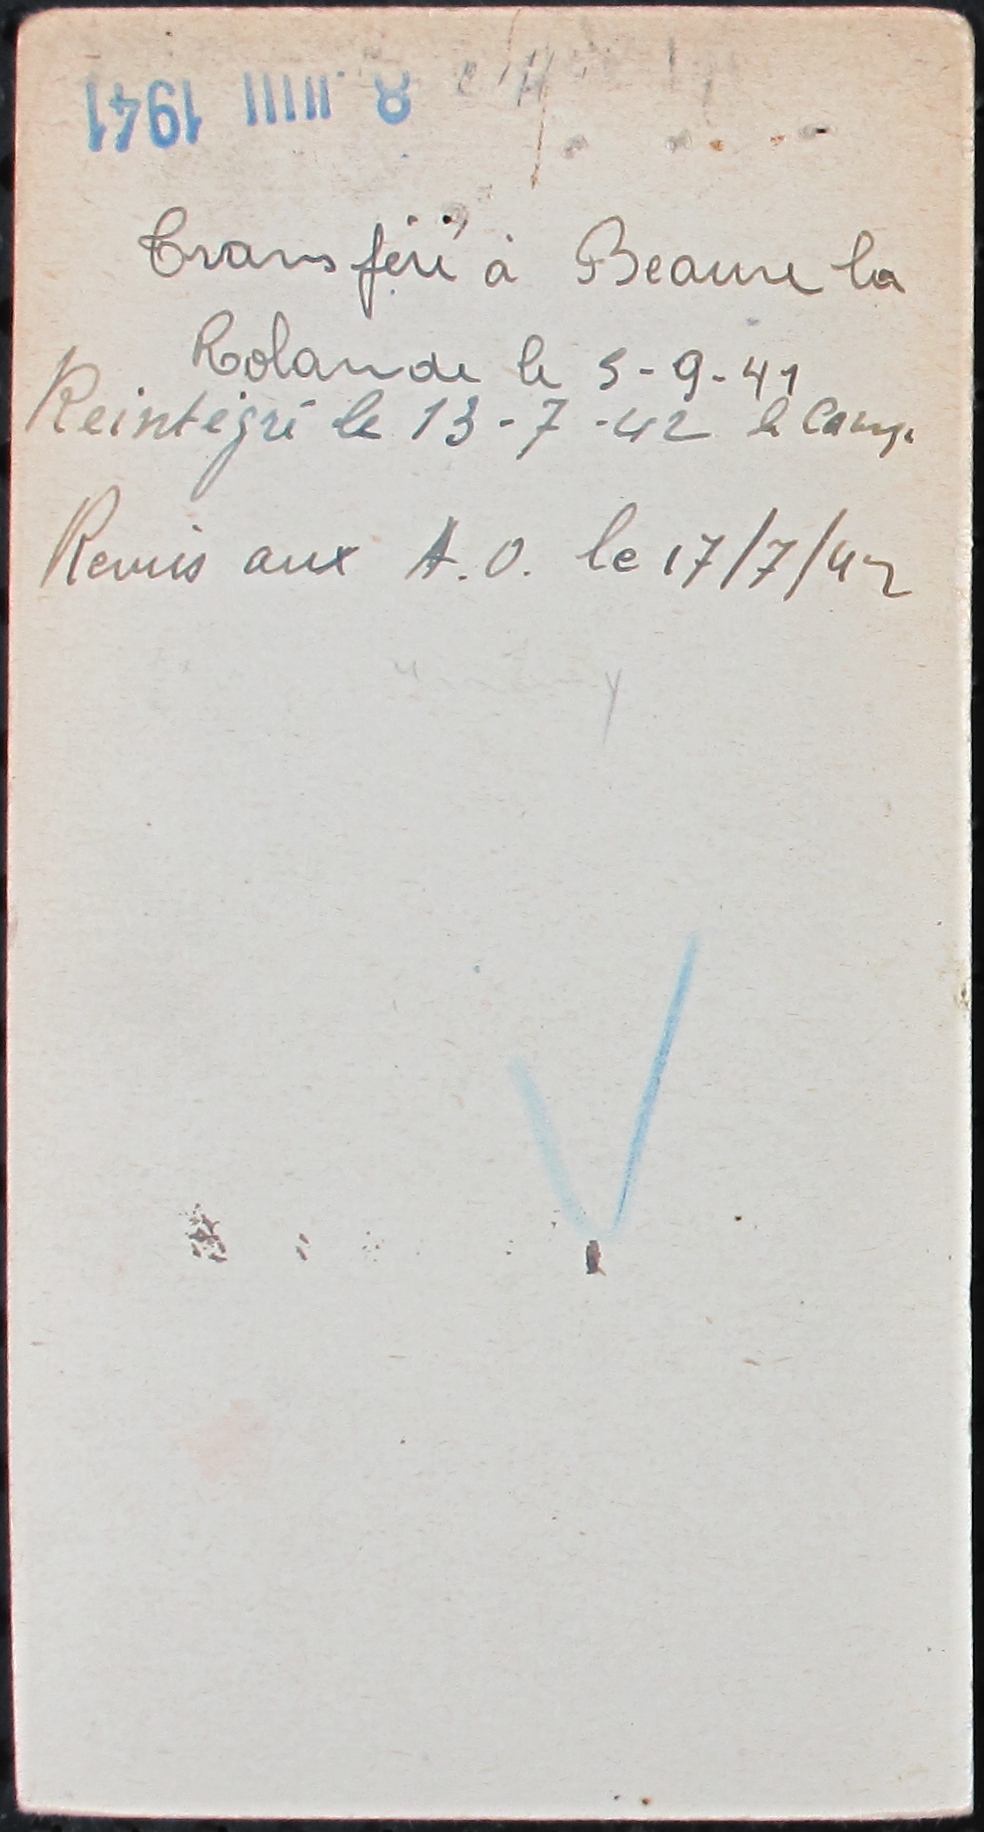 8 JUIL 1941
Transféré à Beaune la
Rolande le 5-9-41
Reintégré le 13-7-42 le Camp.
Remis aux A.O. le 17/7/42